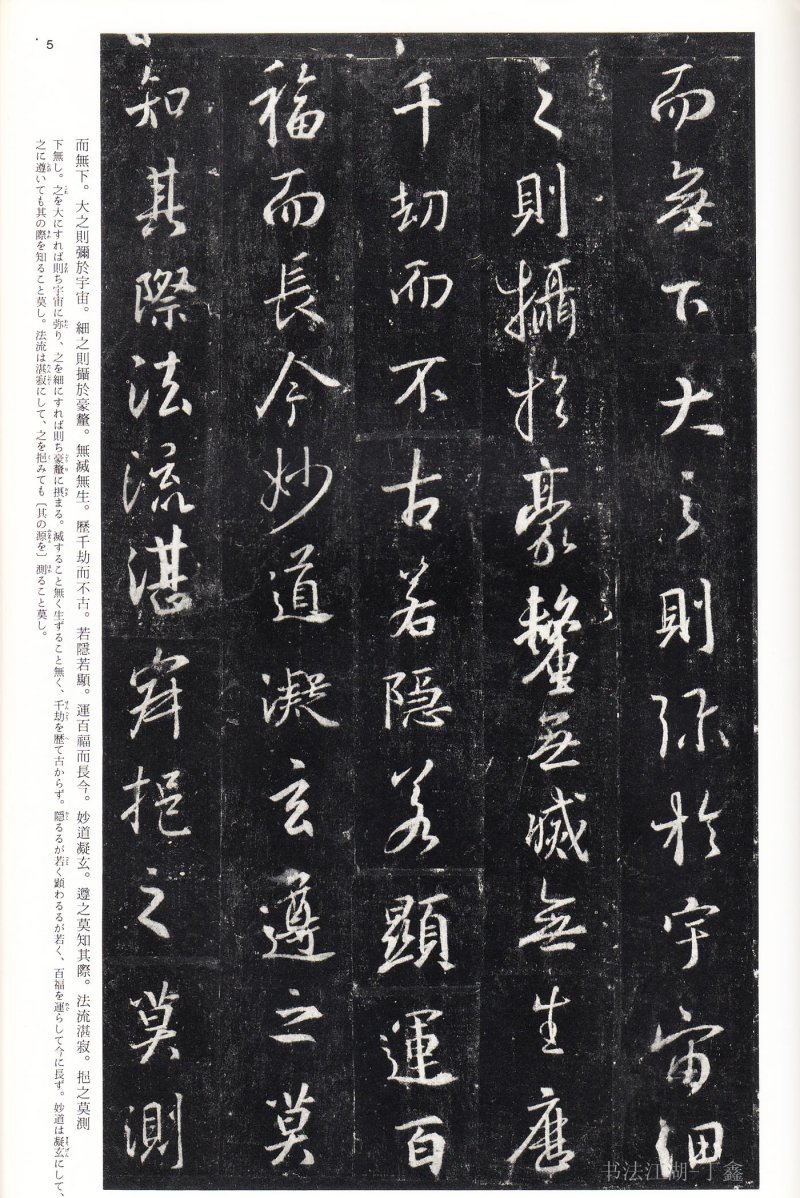 而無下大之則弥於宇宙細
之則攝於豪釐無滅無生歷
千劫而不古若隱若顯運百
福而長今妙道凝玄遵之莫
知其際法流湛寂挹之莫測
5
而無下。大之則彌於宇宙。細之則攝於豪釐。無滅無生。歷千劫而不古。若隱若顯。運百福而長今。妙道凝玄。遵之莫知其際。法流湛寂。挹之莫測
下無し。之を大にすれば則ち宇宙に弥り、之を細にすれば則ち豪釐に摂まる。滅すること無く生ずること無く、千劫を歴て古からず。隠るるが若く顕わるるが若く、百福を運らして今に長ず。妙道は凝玄にして、
之に遵いても其の際を知ること莫し。法流は湛寂にして、之を挹みても〔其の源を〕測ること莫し。
书法江湖-丁鑫